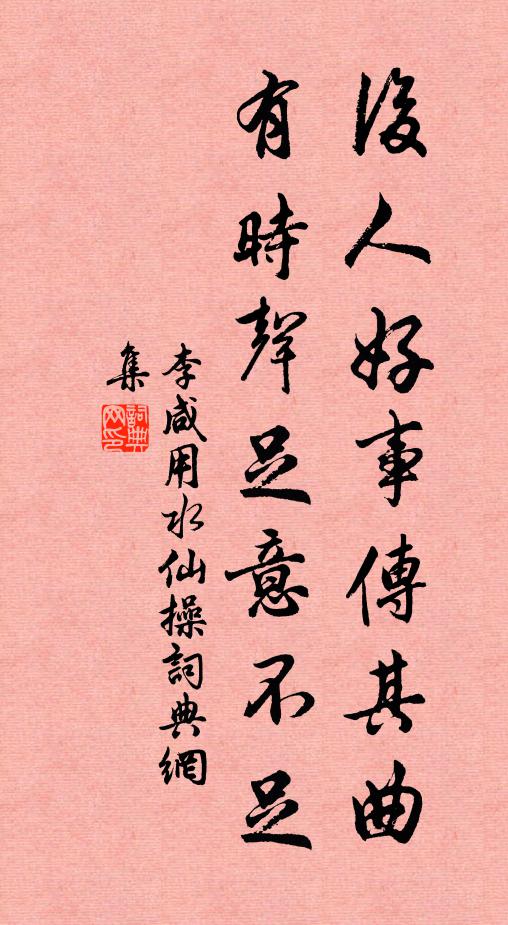 後人好事傳其曲
有時聲足意不足
李咸用水仙操詞典網
集
詞典
网印